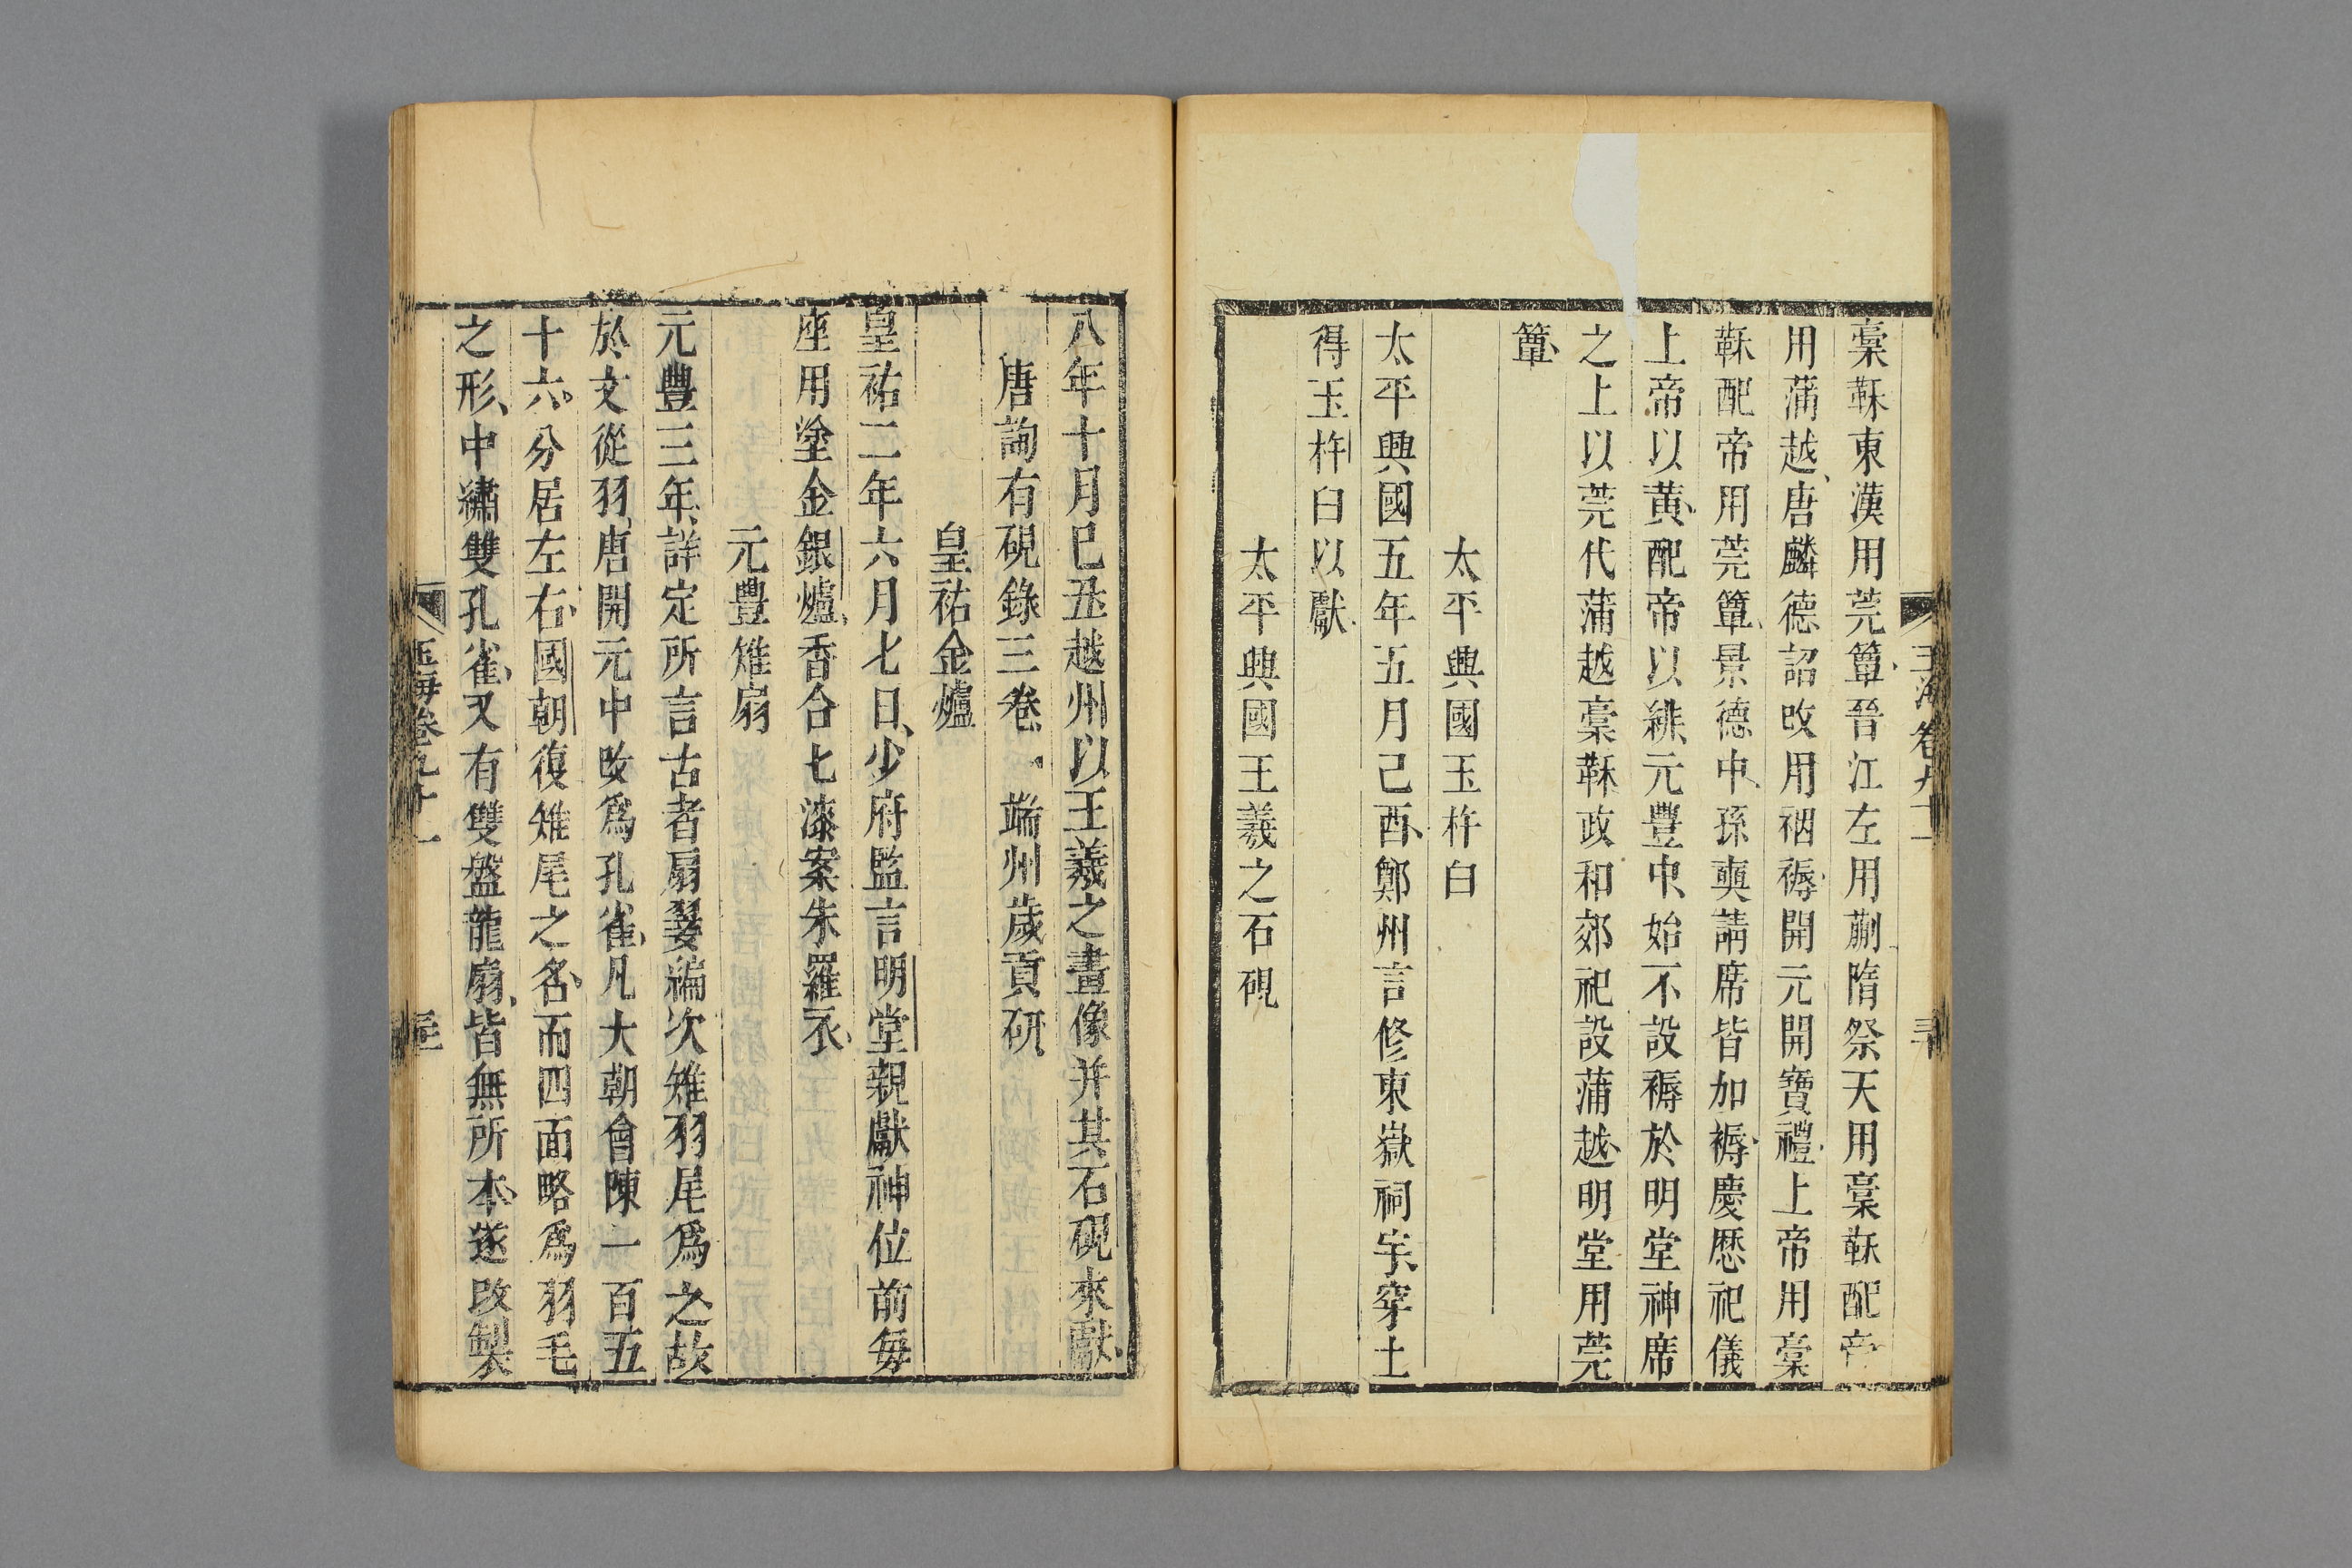 玉海卷九十一
三十
稾秣東漢用莞簟晉江左用蒯隋祭天用稾秣配帝
用蒲越唐麟德詔改用裀褥開元開寶禮上帝用稾
秣配帝用莞簟景德中孫奭請席皆加褥慶歷祀儀
上帝以黄配帝以緋元豐中始不設褥於明堂神席
之上以莞代蒲越稾秣政和郊祀設蒲越明堂用莞
簟
太平興國玉杵臼
太平興國五年五月己酉鄭州言修東嶽祠宇穿土
得玉杵臼以獻
太平興國王羲之石硯
八年十月己丑越州以王羲之畫像并其石硯來獻
唐詢有硯錄三卷 端州歲貢研
皇祐金爐
皇祐二年六月七日少府監言明堂親獻神位前每
座用塗金銀爐香合七漆案朱羅衣
元豐雉扇
元豐三年詳定所言古者扇翣編次雉羽尾爲之故
於文從羽唐開元中改爲孔雀凡大朝會陳一百五
十六分居左右國朝復雉尾之名而四面略爲羽毛
之形中繡雙孔雀又有雙盤龍扇皆無所本遂改製
玉海卷九十一